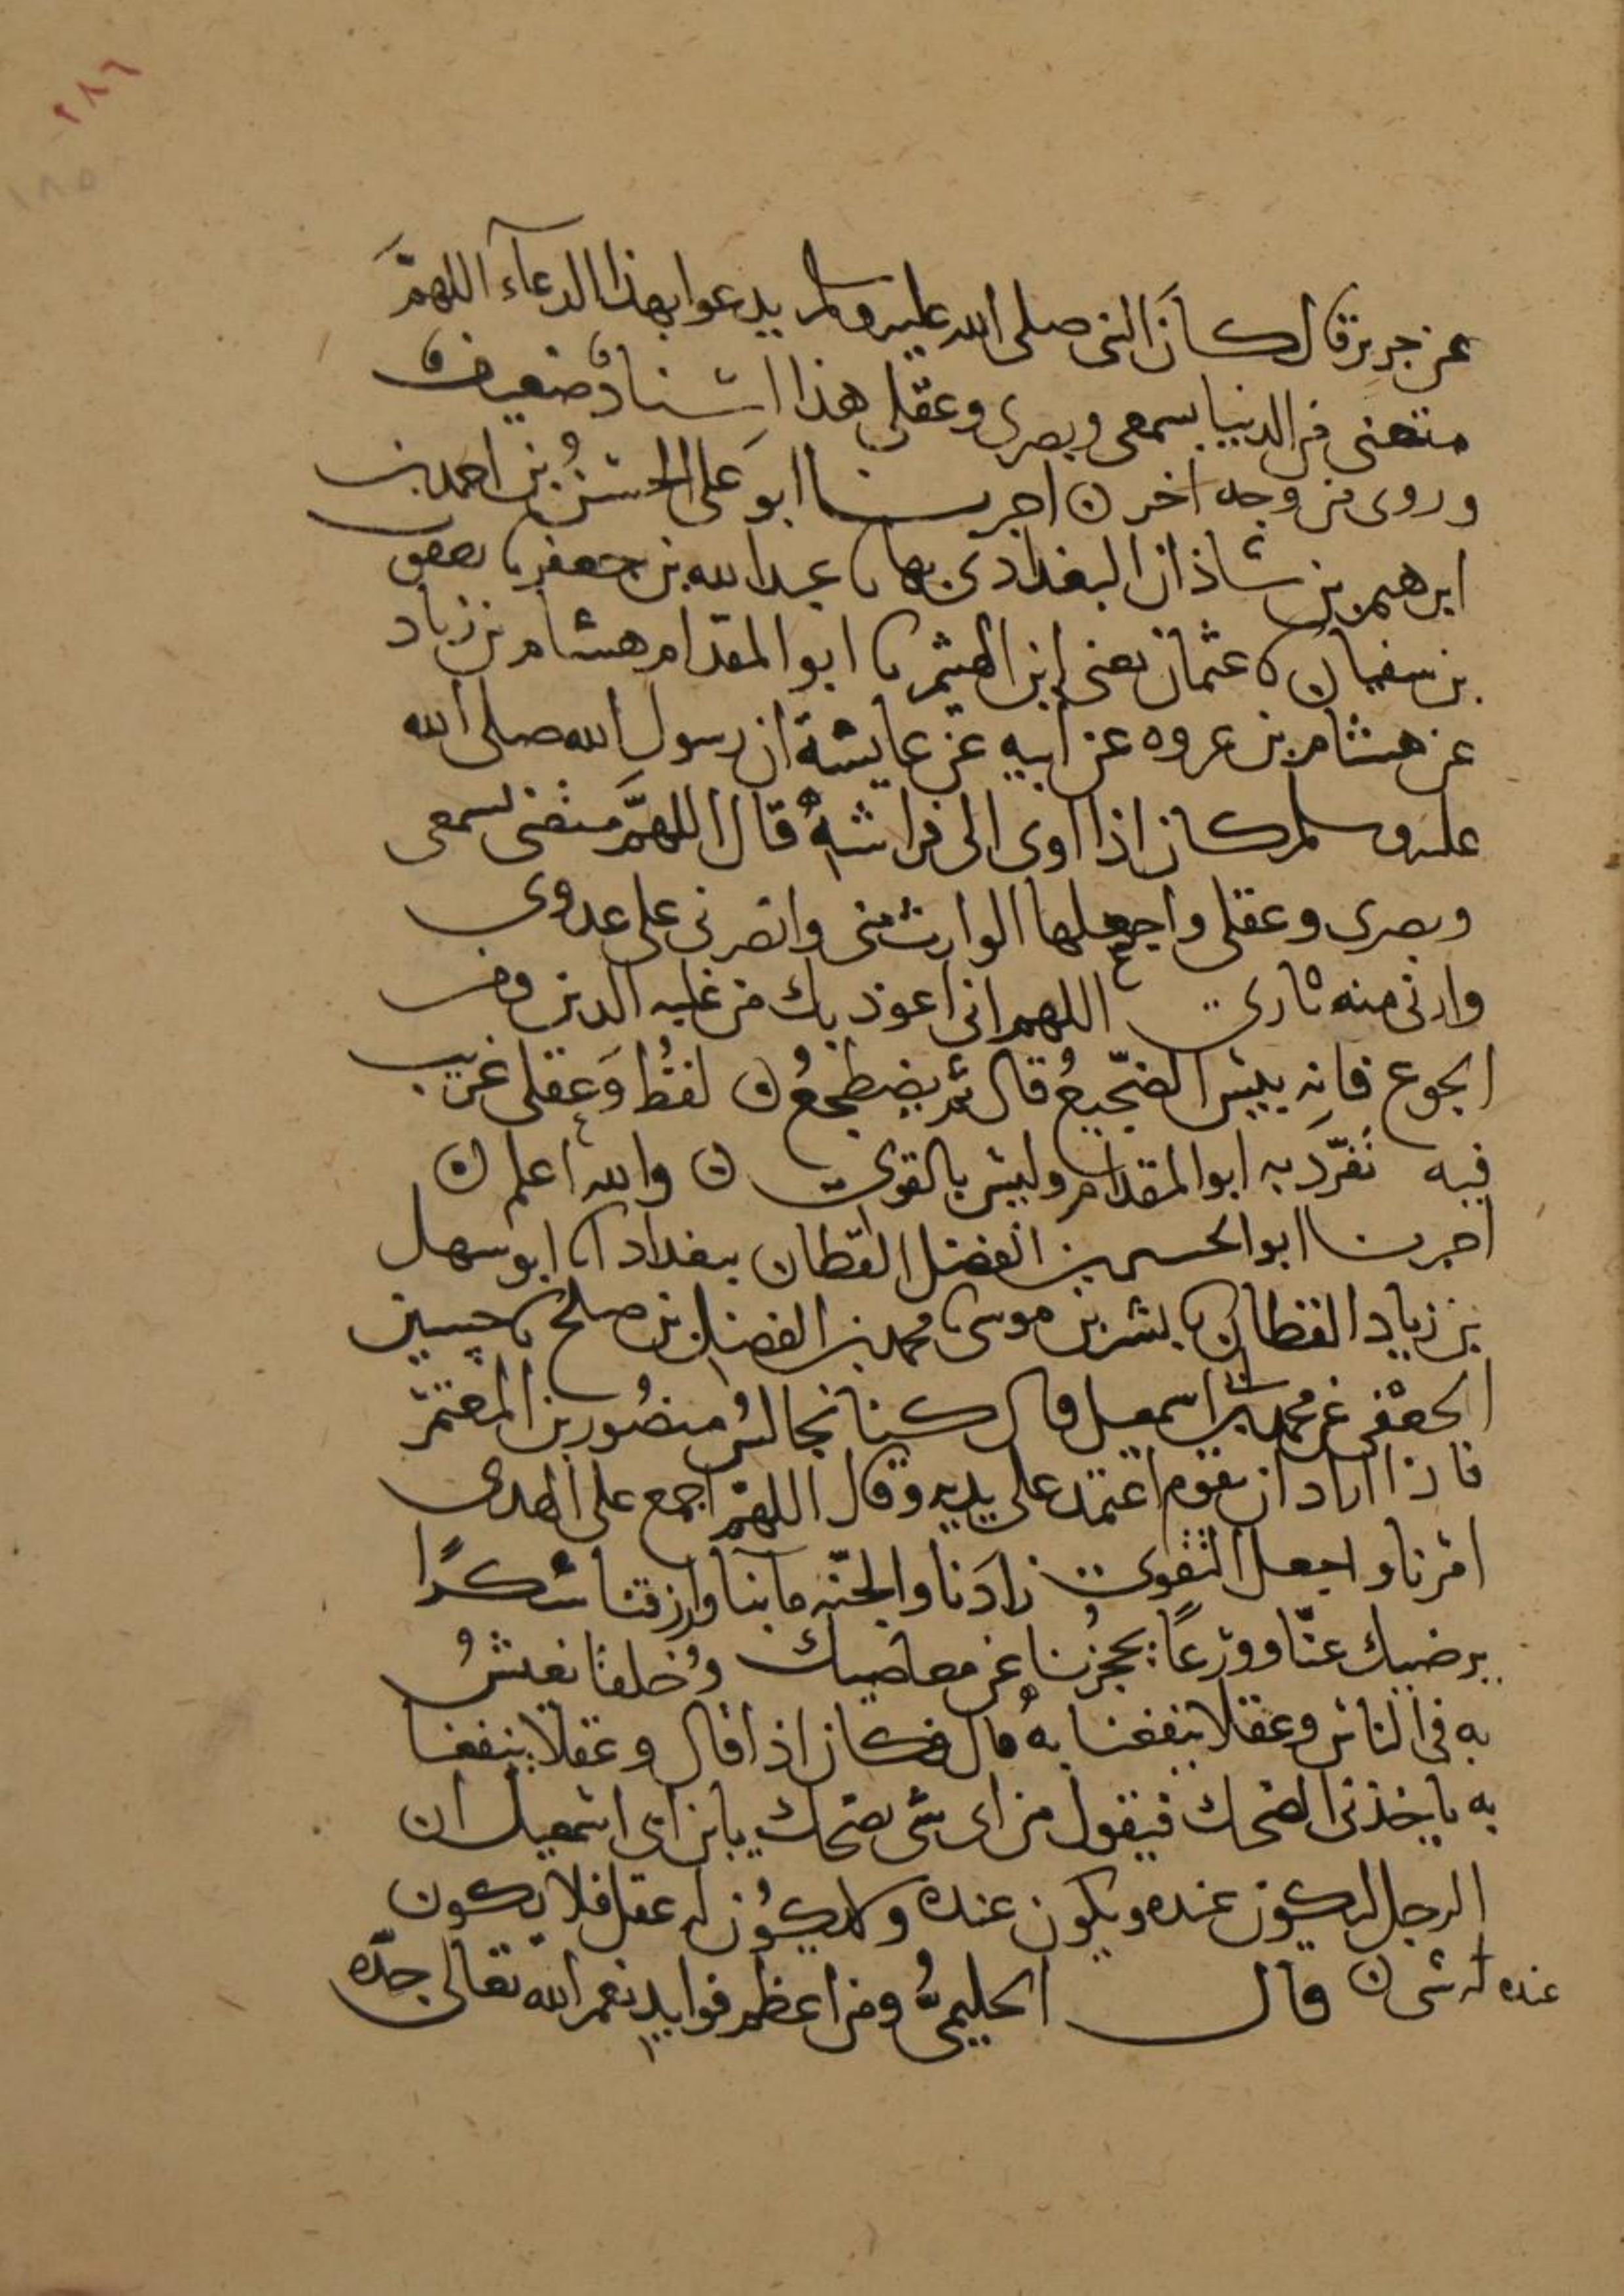 ٢٨٦
١٨٥
عن جرير قال كَانَ النبى صلى الله عليه وسلم يدعوا بهذا الدعآء اللهمَّ
متعنى فى الدنيا بسمعى وبصرى وعقلى هذا اسنادٌ ضعيف
وروى من وجه اخر ن اخبرنا ابو عَلى الحسنُ بن احمد بن
ابرهيم بن شاذان البغدادى بها نا عبد الله بن جعفر نا يعقوب
بن سفيان نا عثمان يعنى ابن الهيثم نا ابو المقدام هشام بن زياد
عن هشام بن عروه عن ابيه عن عايشة ان رسول الله صلى الله
عليه وسلم كان اذا اوى الى فراشهِ قال اللهمَّ متعنى بسمعى
وبصرى وعقلى واجعلها الوارث منى وانصرنى على عدوى
وارنى منه ثارى اللهم انى اعوذ بك من غلبه الدين ومن
الجوع فانه بيس الضّجيعُ قال ثم يضطجعُ ن لفظُ وَعقلى غريب
فيه تفرّدَ به ابو المقدام وليس بالقوى ن والله اعلم ن
اخبرنا ابو الحسين بن الفضل القطان ببغداد انا ابو سهل
بن زياد القطان نا بشر بن موسى نا محمد بن الفضل بن صلح نا حسين
الجعفى عن محمد بن ابى اسمعيل قال كنا نجالسُ منصُور بن المعتمر
فاذا اراد ان يقوم اعتمد على يديه وقال اللهمّ اجمع على الهدى
امْرنا واجعل التقوى زادَنا والجنّه مآبنا وارزقنا شكرًا
يرضيك عنّا وورَعًا يحجزُنا عن معاصيك وخُلقًا نعيشُ
به فى الناس وعقلا ينفعنا بهِ قال فكان اذا قال وعقلا ينفعنا
به ياخذنى الضحك فيقول من اى شى تضحك يا بن ابى اسمعيل ان
الرجل ليكون عنده ويكون عنده ولا يكُون له عقل فلا يكون
عنده له شى ن قال الحليمىُّ ومن اعظم فوايد نعم الله تعالى جدّه